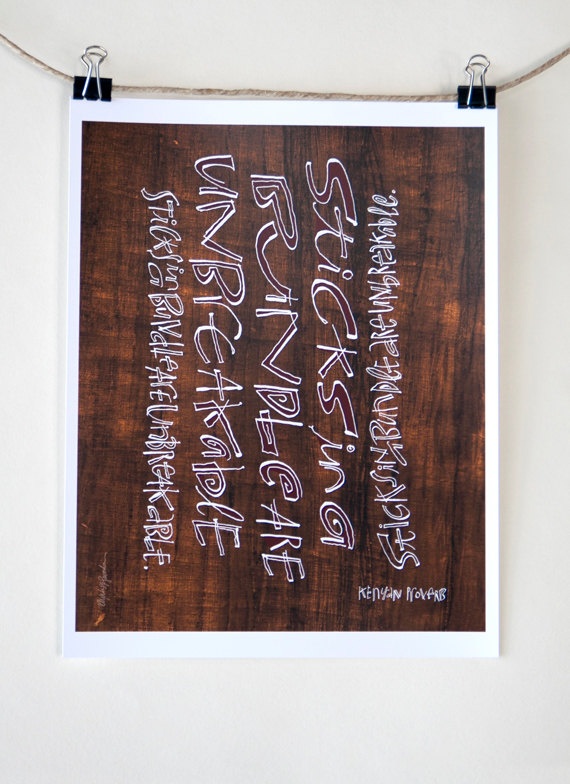 SticKS in a BUNDLE are UNBREAKABLE.
SticKS in a
BUNDLE ARE
UNBREAKABLE
Sticks in a BUNdLE ARE UNBREAKABLE.
KENYAN PROVERB